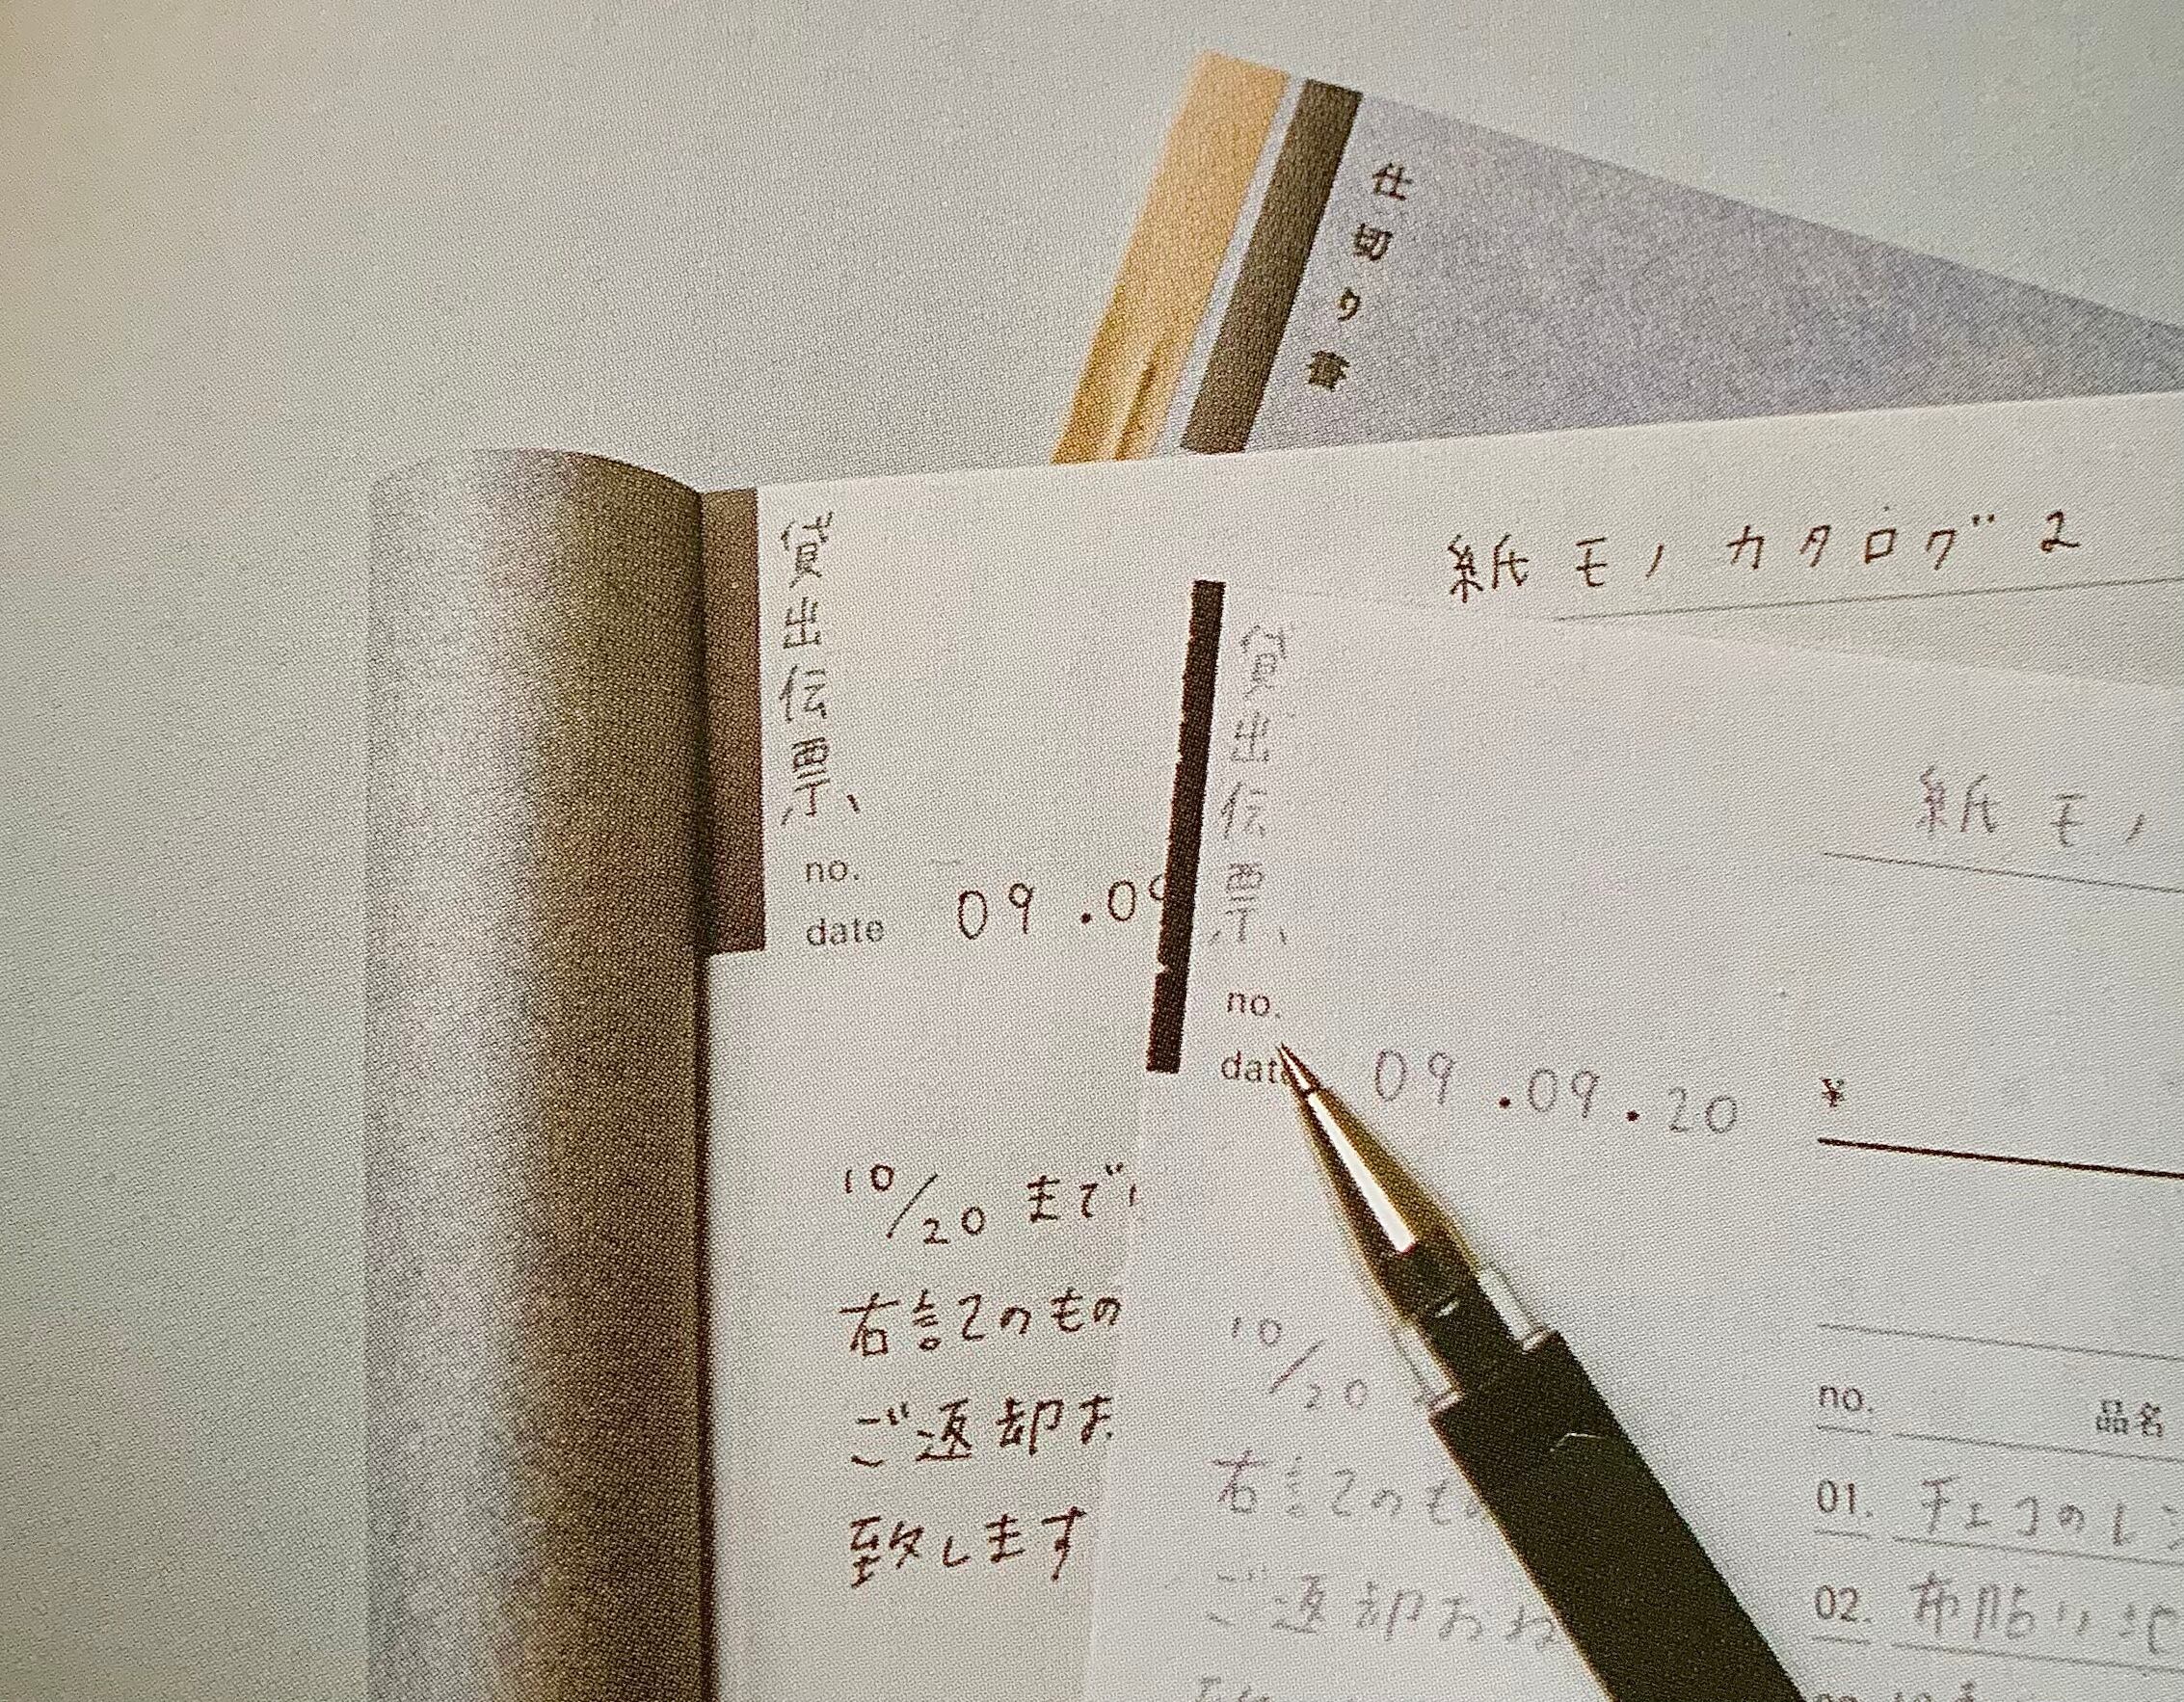 仕切り書
紙モノカタログ2
貸出伝票
no.
date 09.09
10/20 まで
右記のもの
ご返却お
致します
貸出伝票
紙モノ
no.
date 09.09.20
¥
10/20
右記のもの
ご返却おね
no. 品名
01. チェコのレ
02. 布貼り